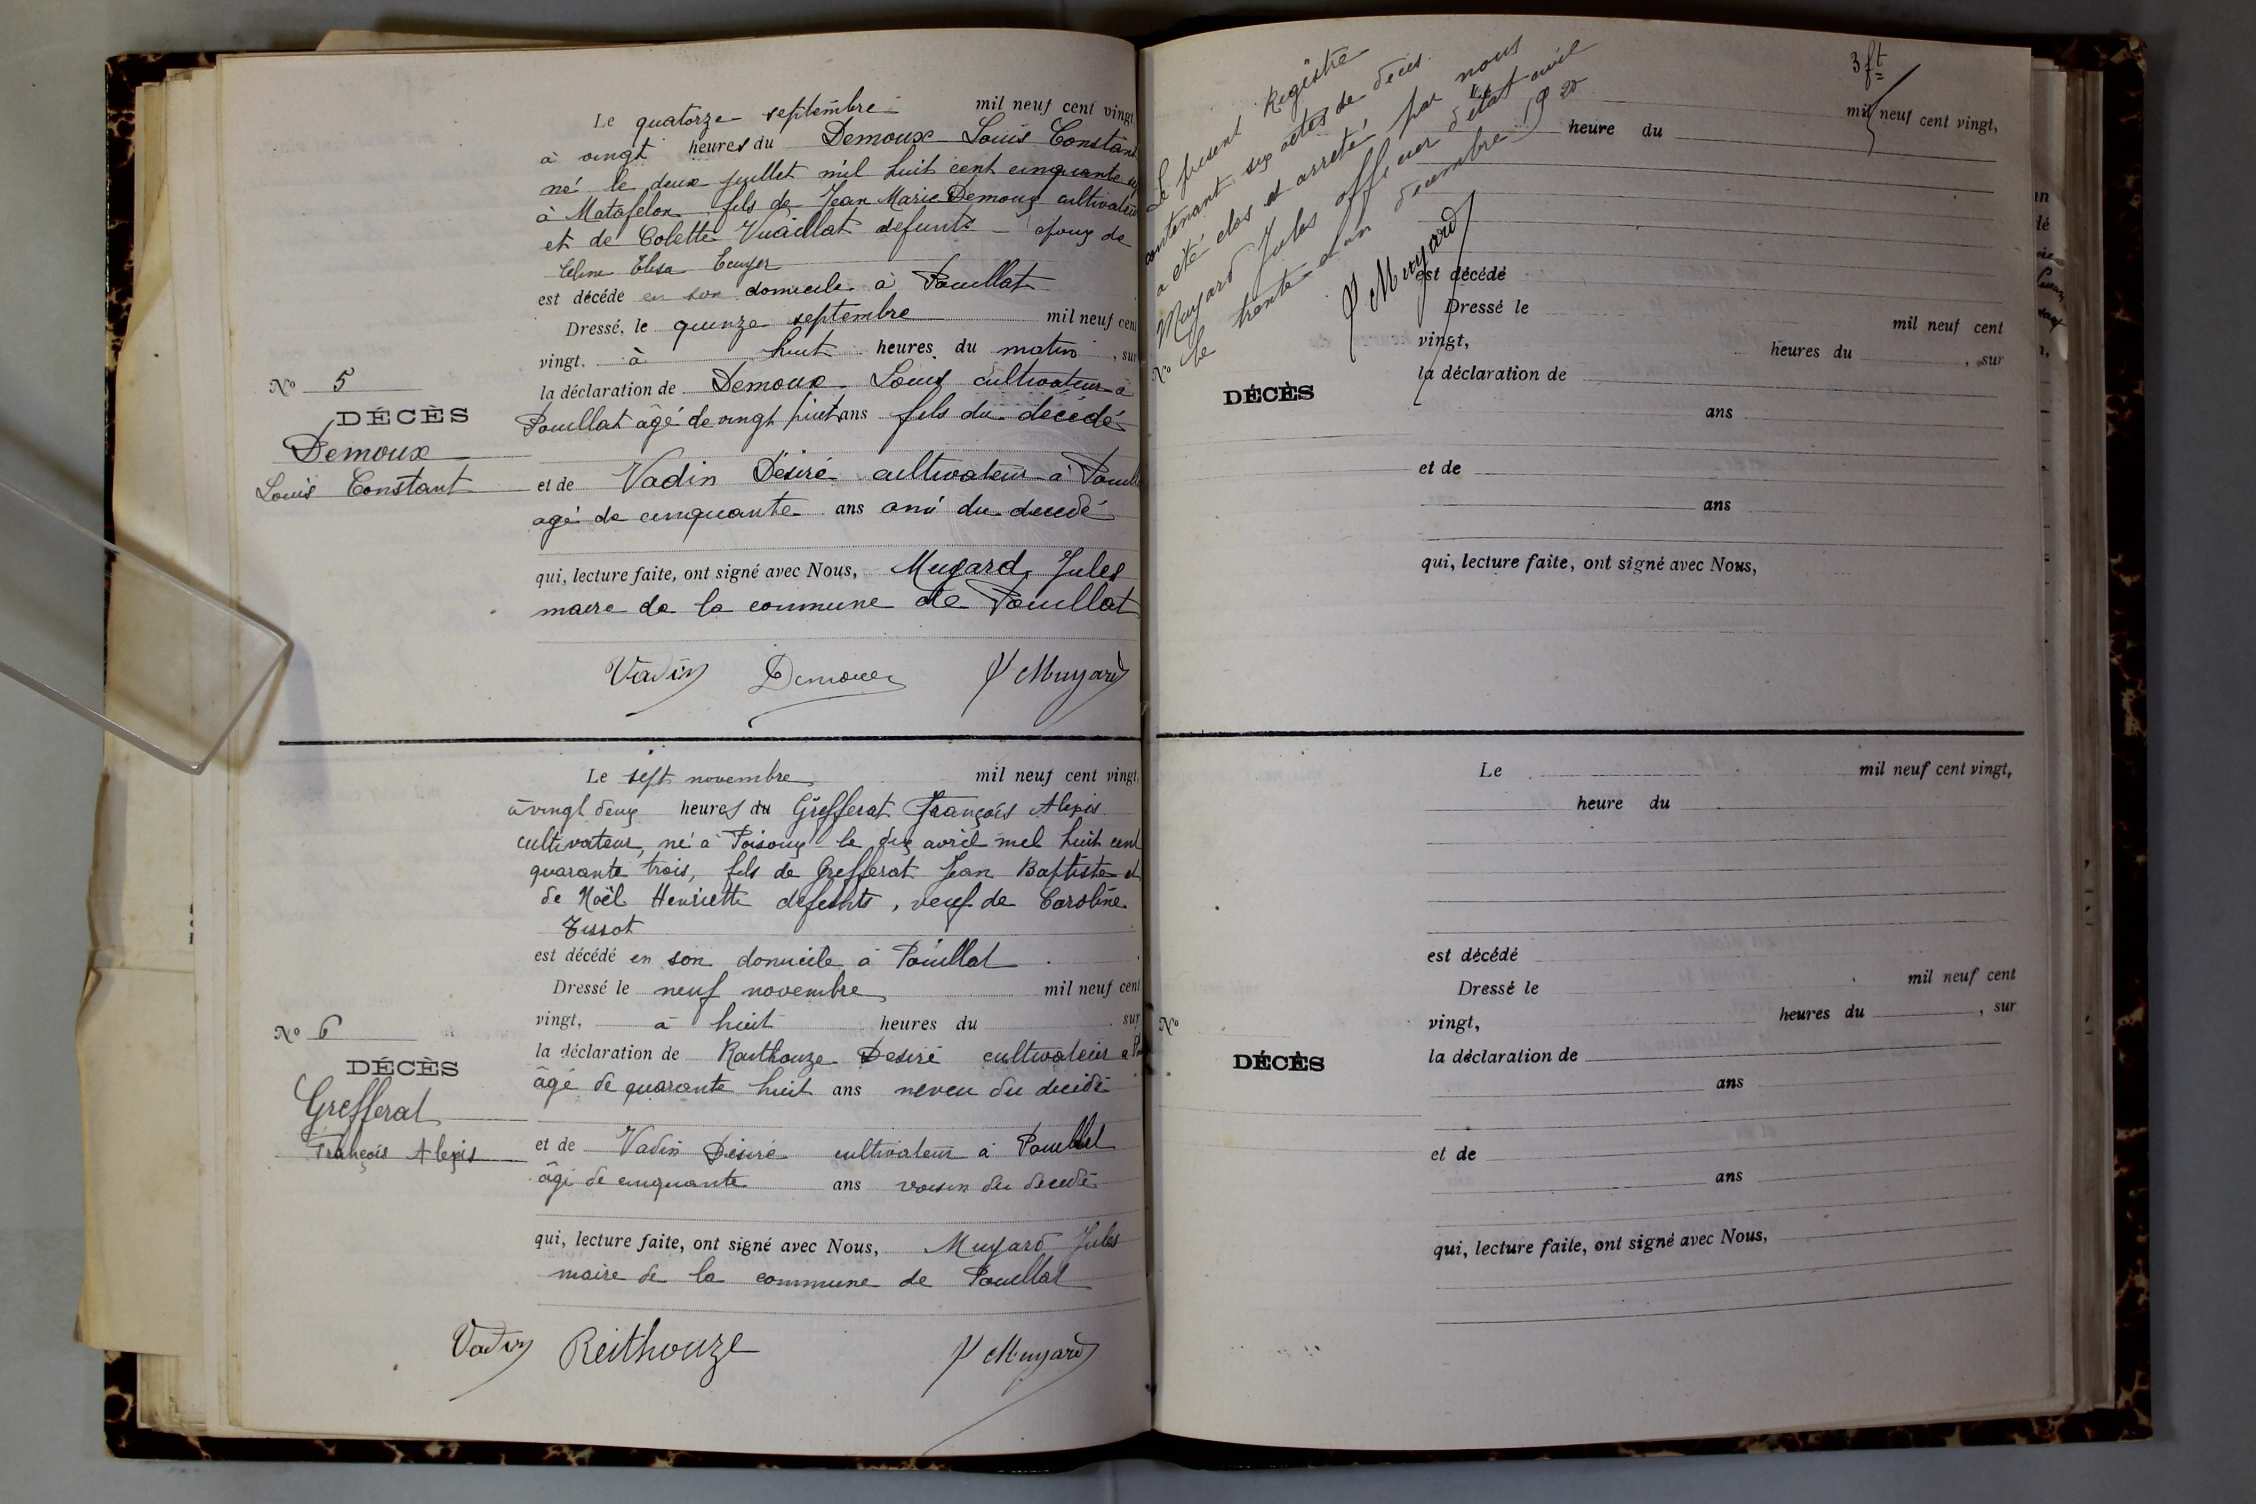 Le quatorze septembre mil neuf cent vingt
à vingt heures du Demoux Louis Constant
né le deux juillet mil huit cent cinquante
à Matafelon fils de Jean Marie Demoux cultivateur
et de Colette Vuaillat defunts époux de
Celine Elisa
est décédé en son domicile à Pouillat
Dressé, le quinze septembre mil neuf cent
vingt, à huit heures du matin, sur
N° 5
la déclaration de Demoux Louis cultivateur à
DÉCÈS
Pouillat âgé de vingt huit ans fils du décédé
Demoux
Louis Constant
et de Vadin Désiré cultivateur à Pouillat
agé de cinquante ans ami du décédé
qui, lecture faite, ont signé avec Nous, Muyard Jules
maire de la commune de Pouillat
Vadin Demoux J Muyard
Le sept novembre mil neuf cent vingt,
à vingt deux heures du Grefferat François Alexis
cultivateur, né à Poisoux le dix avril mil huit cent
quarante trois, fils de Grefferat Jean Baptiste et
de Noël Henriette defunts, veuf de Caroline
Tissot
est décédé en son domicile à Pouillat
Dressé le neuf novembre mil neuf cent
vingt, à huit heures du sur
N° 6
la déclaration de Raithouze Desiré cultivateur à
DÉCÈS
âgé de quarante huit ans neveu du décédé
Grefferat
François Alexis
et de Vadin Désiré cultivateur à Pouillat
âgé de cinquante ans voisin du décédé
qui, lecture faite, ont signé avec Nous, Muyard Jules
maire de la commune de Pouillat
Vadin Reithouze J Muyard
Le présent Registre
contenant six actes de décès
a été clos et arrêté par nous
Muyard Jules officier d'état civil
le trente et un décembre 1920
J Muyard
Le mil neuf cent vingt,
heure du
est décédé
Dressé le mil neuf cent
vingt, heures du , sur
N°
DÉCÈS
la déclaration de
ans
et de
ans
qui, lecture faite, ont signé avec Nous,
Le mil neuf cent vingt,
heure du
est décédé
Dressé le mil neuf cent
vingt, heures du , sur
N°
DÉCÈS
la déclaration de
ans
et de
ans
qui, lecture faite, ont signé avec Nous,